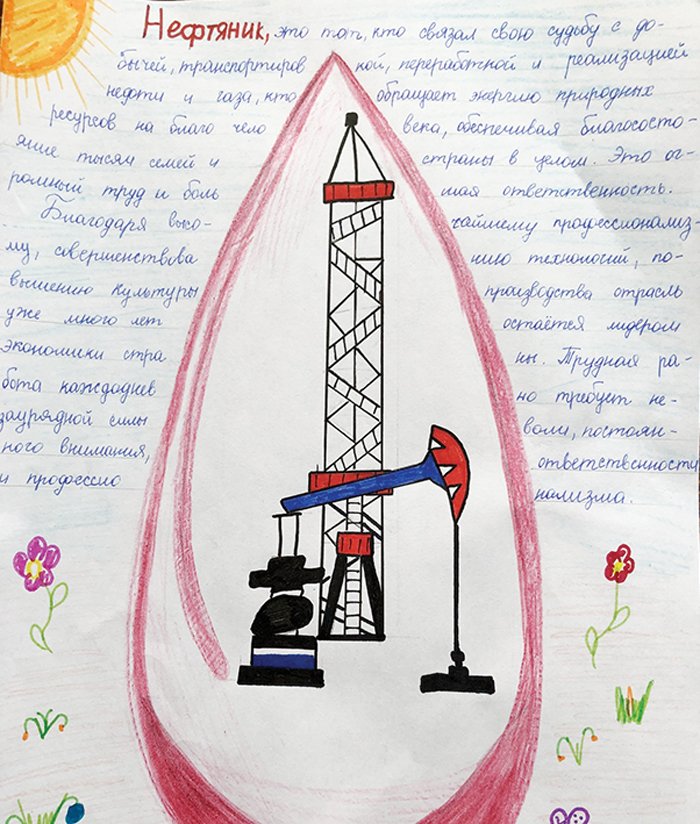 Нефтяник, это тот, кто связал свою судьбу с до-
бычей, транспортиров кой, переработкой и реализацией
нефти и газа, кто обращает энергию природных
ресурсов на благо чело века, обеспечивая благососто-
яние тысяч семей и страны в целом. Это ог-
ромный труд и боль шая ответственность.
Благодаря высо- чайшему профессионализ-
му, совершенствова нию технологий, по-
вышению культуры производства отрасль
уже много лет остаётся лидером
экономики стра ны. Трудная ра-
бота каждоднев но требует не-
заурядной силы воли, постоян-
ного внимания, ответственности
и профессио нализма.